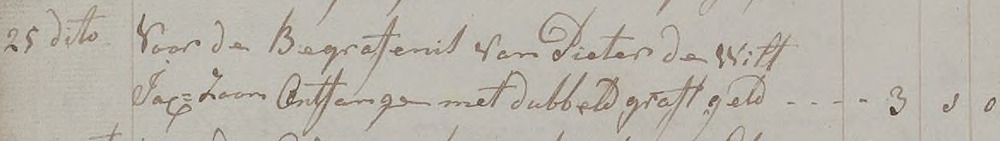 25 dito Voor de Begrafenis van Pieter de Witt
Jac=Zoon Ontfange met dubbeld graft geld - - - - 3 s 0